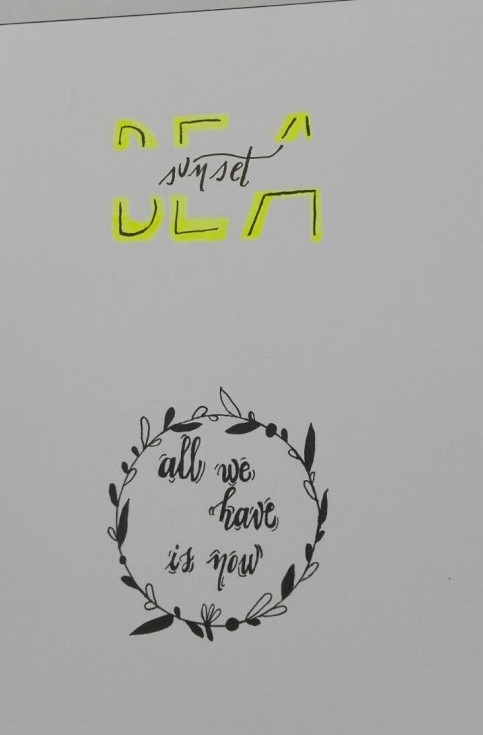 BEA
sunset
all we
have
is now